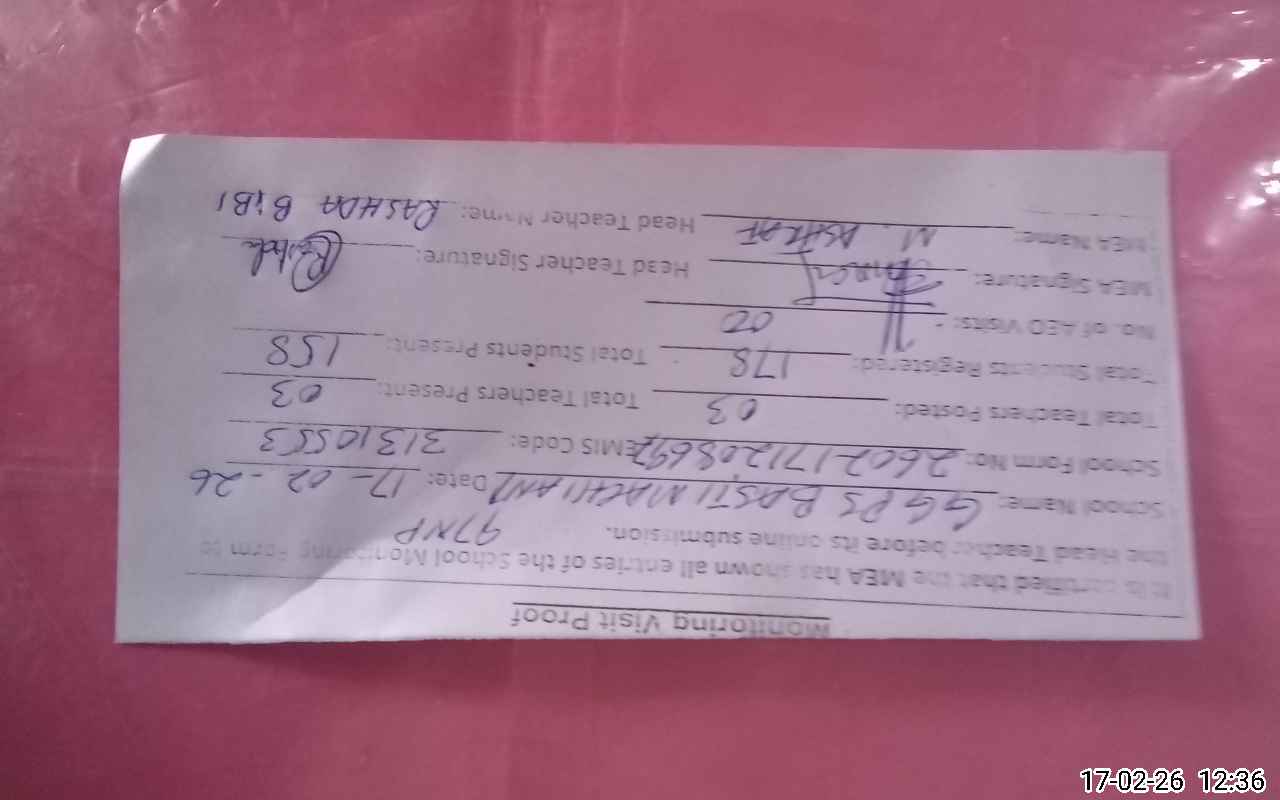 Monitoring Visit Proof
It is certified that the MEA has shown all entries of the School Monitoring Form to
the Head Teacher before its online submission. 97NP
School Name: GGPS BASTI MACHIANI Date: 17-02-26
School Form No: EMIS Code: 31310553
Total Teachers Posted: 03 Total Teachers Present: 03
Total Students Registered: 178 Total Students Present: 158
No. of AEO Visits: 00
MEA Signature: Head Teacher Signature:
MEA Name: M. ASHRAF Head Teacher Name: RASHDA BiBI
17-02-26 12:36